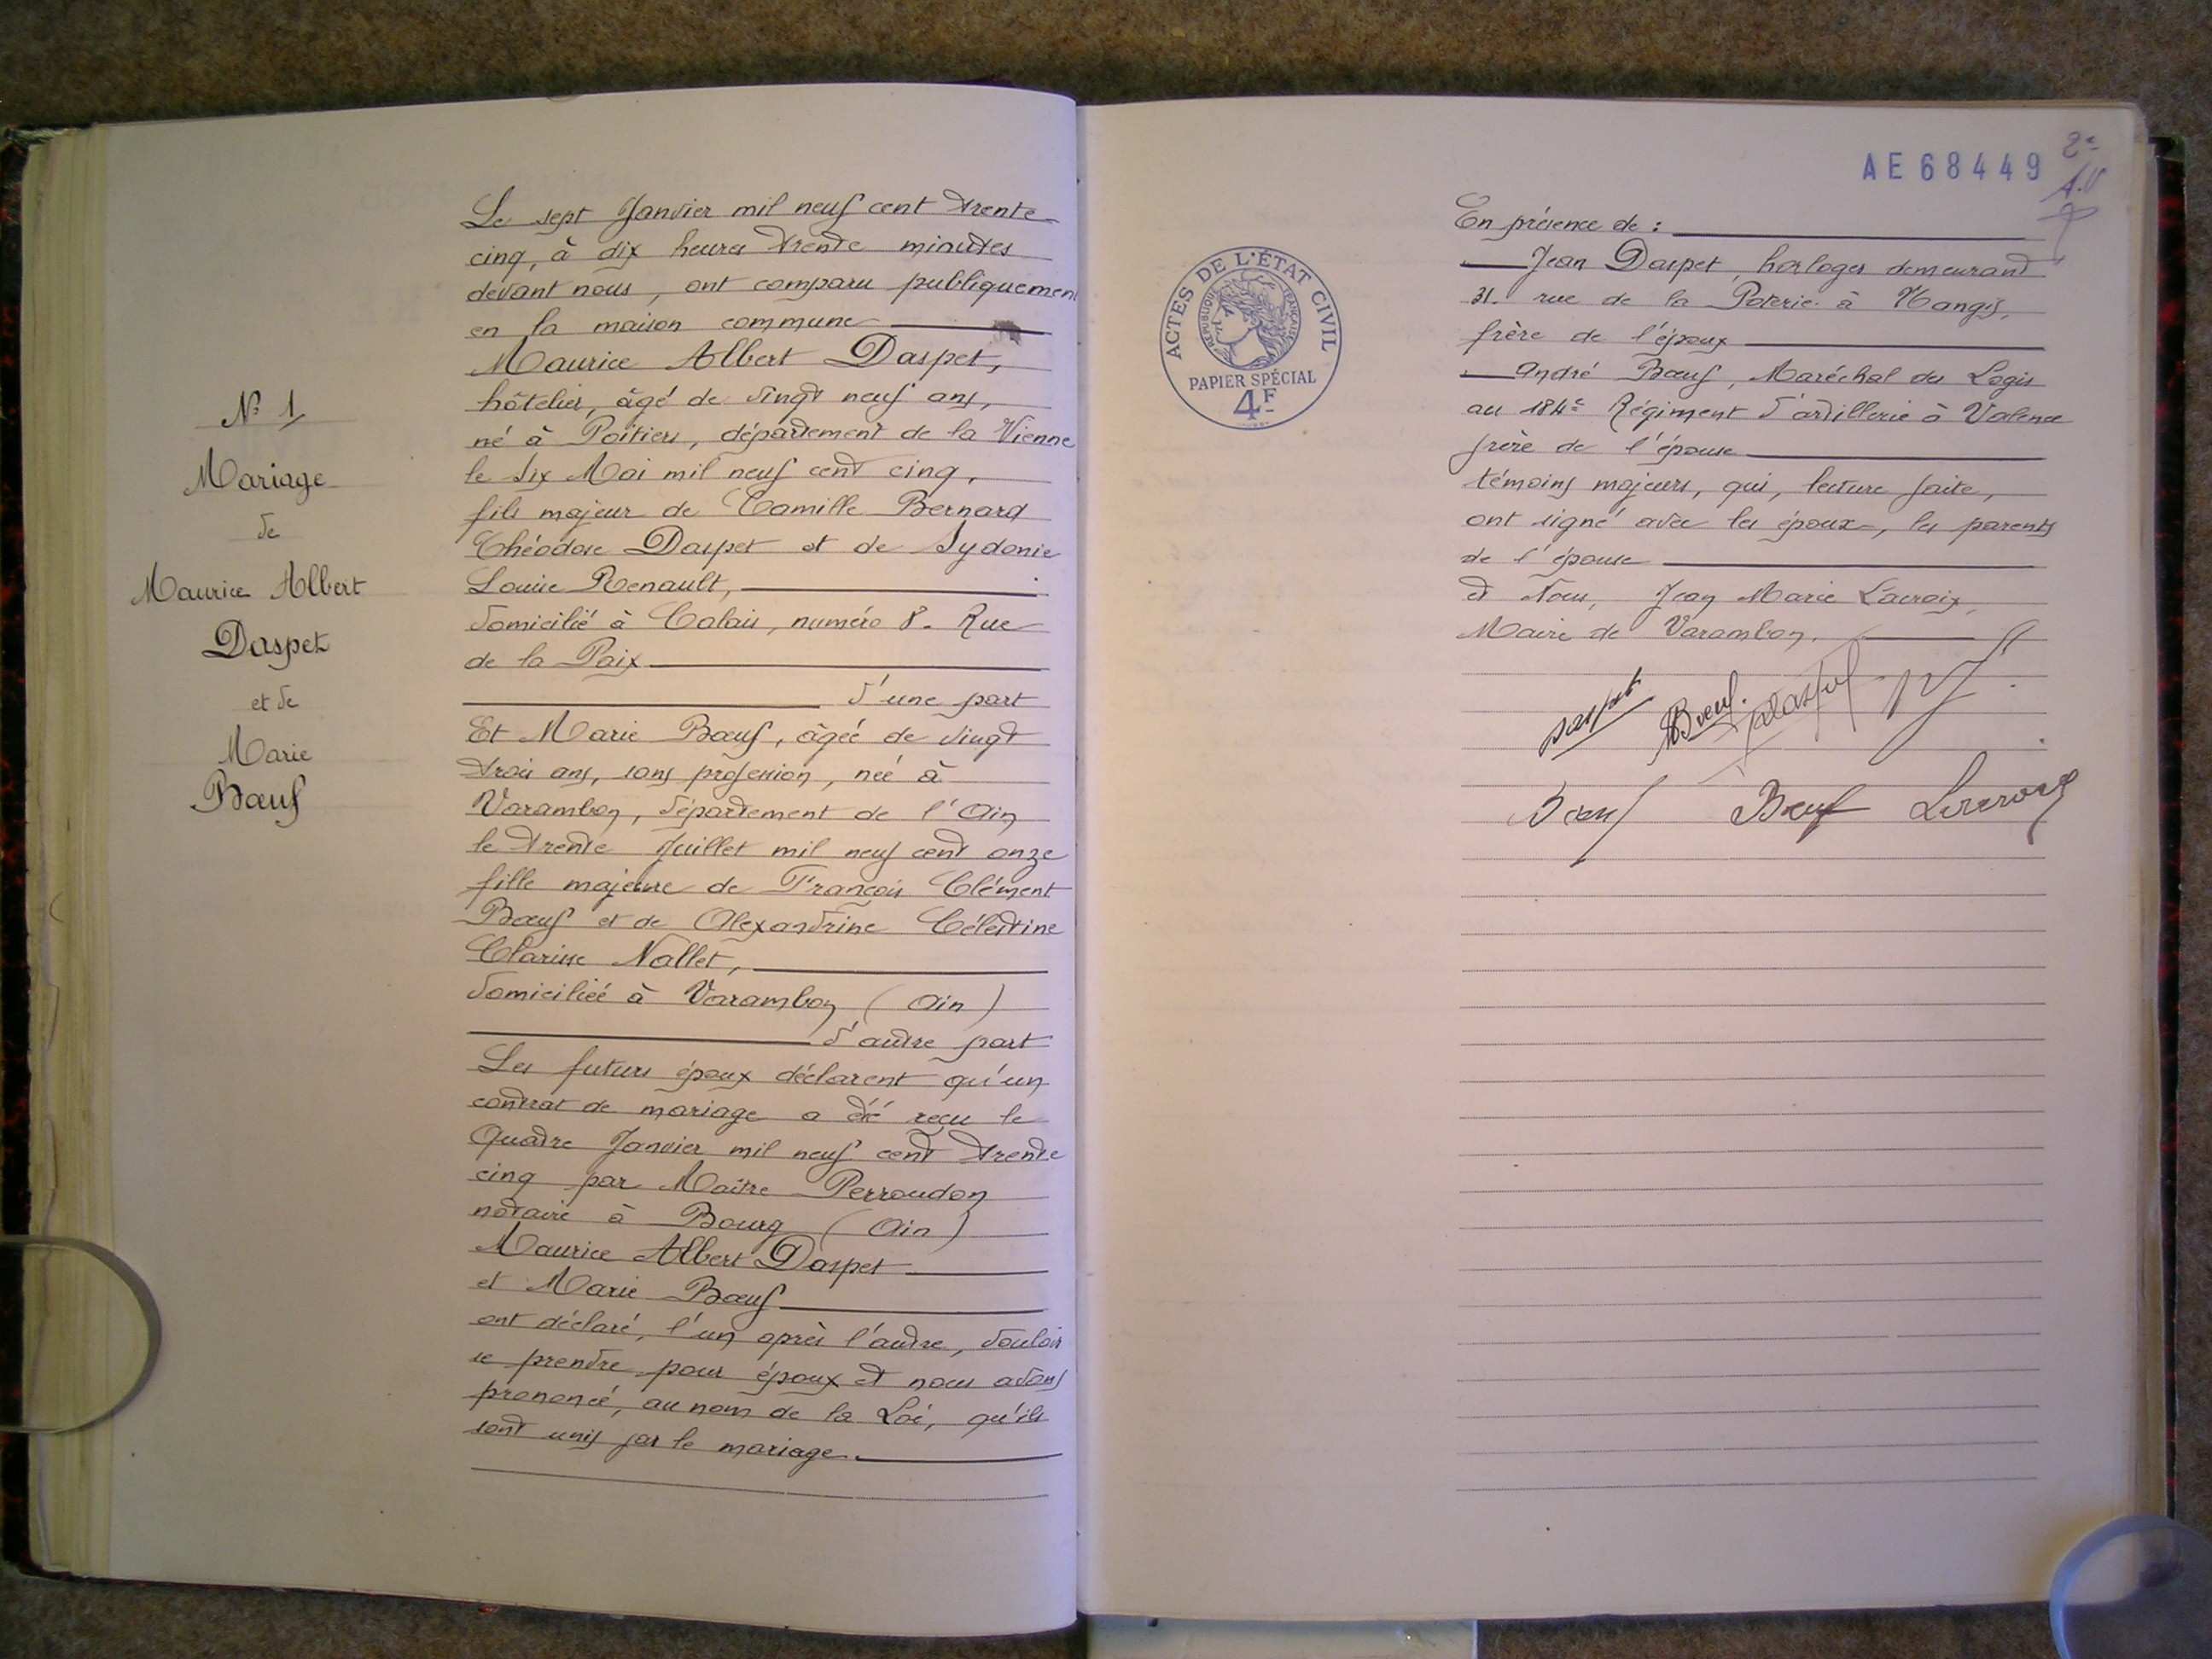 N° 1
Mariage
de
Maurice Albert
Daspet
et de
Marie
Bœuf
Le sept Janvier mil neuf cent trente
cinq, à dix heures trente minutes
devant nous, ont comparu publiquement
en la maison commune
Maurice Albert Daspet,
hôtelier, âgé de vingt neuf ans,
né à Poitiers, département de la Vienne
le six Mai mil neuf cent cinq,
fils majeur de Camille Bernard
Théodore Daspet et de Sydonie
Louise Renault,
domicilié à Calais, numéro 8. Rue
de la Paix
d'une part
Et Marie Bœuf, âgée de vingt
trois ans, sans profession, née à
Varambon, département de l'Ain
le trente Juillet mil neuf cent onze
fille majeure de François Clément
Bœuf et de Alexandrine Célestine
Clarisse Nallet,
domiciliée à Varambon (Ain)
d'autre part
Les futurs époux déclarent qu'un
contrat de mariage a été reçu le
Quatre Janvier mil neuf cent trente
cinq par Maître Perroudon
notaire à Bourg (Ain)
Maurice Albert Daspet
et Marie Bœuf
ont déclaré, l'un après l'autre, vouloir
se prendre pour époux et nous avons
prononcé, au nom de la Loi, qu'ils
sont unis par le mariage.
ACTES DE L'ÉTAT CIVIL
RÉPUBLIQUE FRANÇAISE
PAPIER SPÉCIAL
4F
AE 68449
2e
En présence de :
Jean Daspet, horloger demeurant
31. rue de la Poterie à Nangis,
frère de l'époux
André Bœuf, Maréchal des Logis
au 184e Régiment d'artillerie à Valence
frère de l'épouse
témoins majeurs, qui, lecture faite,
ont signé avec les époux, les parents
de l'épouse
et Nous, Jean Marie Lacroix,
Maire de Varambon.
Daspet
MBœuf.
Bœuf
Bœuf
Lacroix